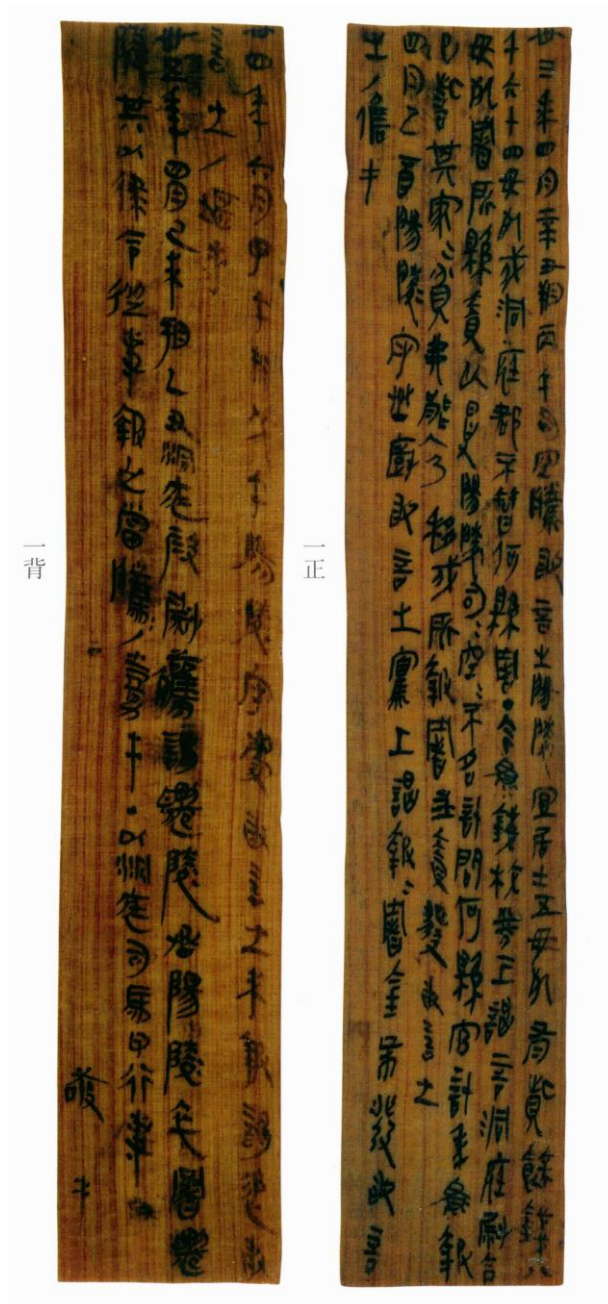 卅三年四月辛丑朔丙午司空騰敢言之陽陵宜居士五毋死有貲餘錢八
千六十四毋死戍洞庭郡不智何縣署·今為錢校券一上謁言洞庭尉令
毋死署所縣責以受陽陵司=空=不名計問何縣官計年為報
已訾其家=貧弗能入乃移戍所報署主責發敢言之
四月己酉陽陵守丞廚敢言之寫上謁報=署金布發敢言
之/儋手
一正
卅四年六月甲午朔戊午陽陵守慶敢言之未報謁追敢
言之/堪手
卅五年四月己未朔乙丑洞庭叚尉觿謂遷陵丞陽陵卒署遷
陵其以律令從事報之當騰=/嘉手·以洞庭司馬印行事
敬手
一背